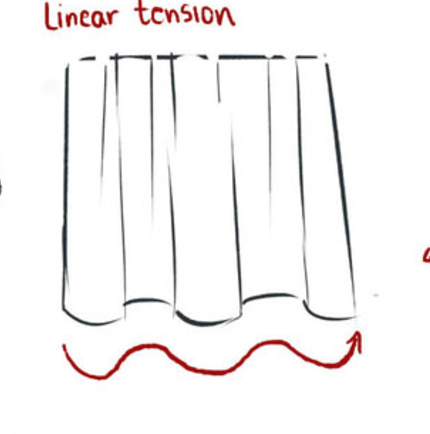 Linear tension